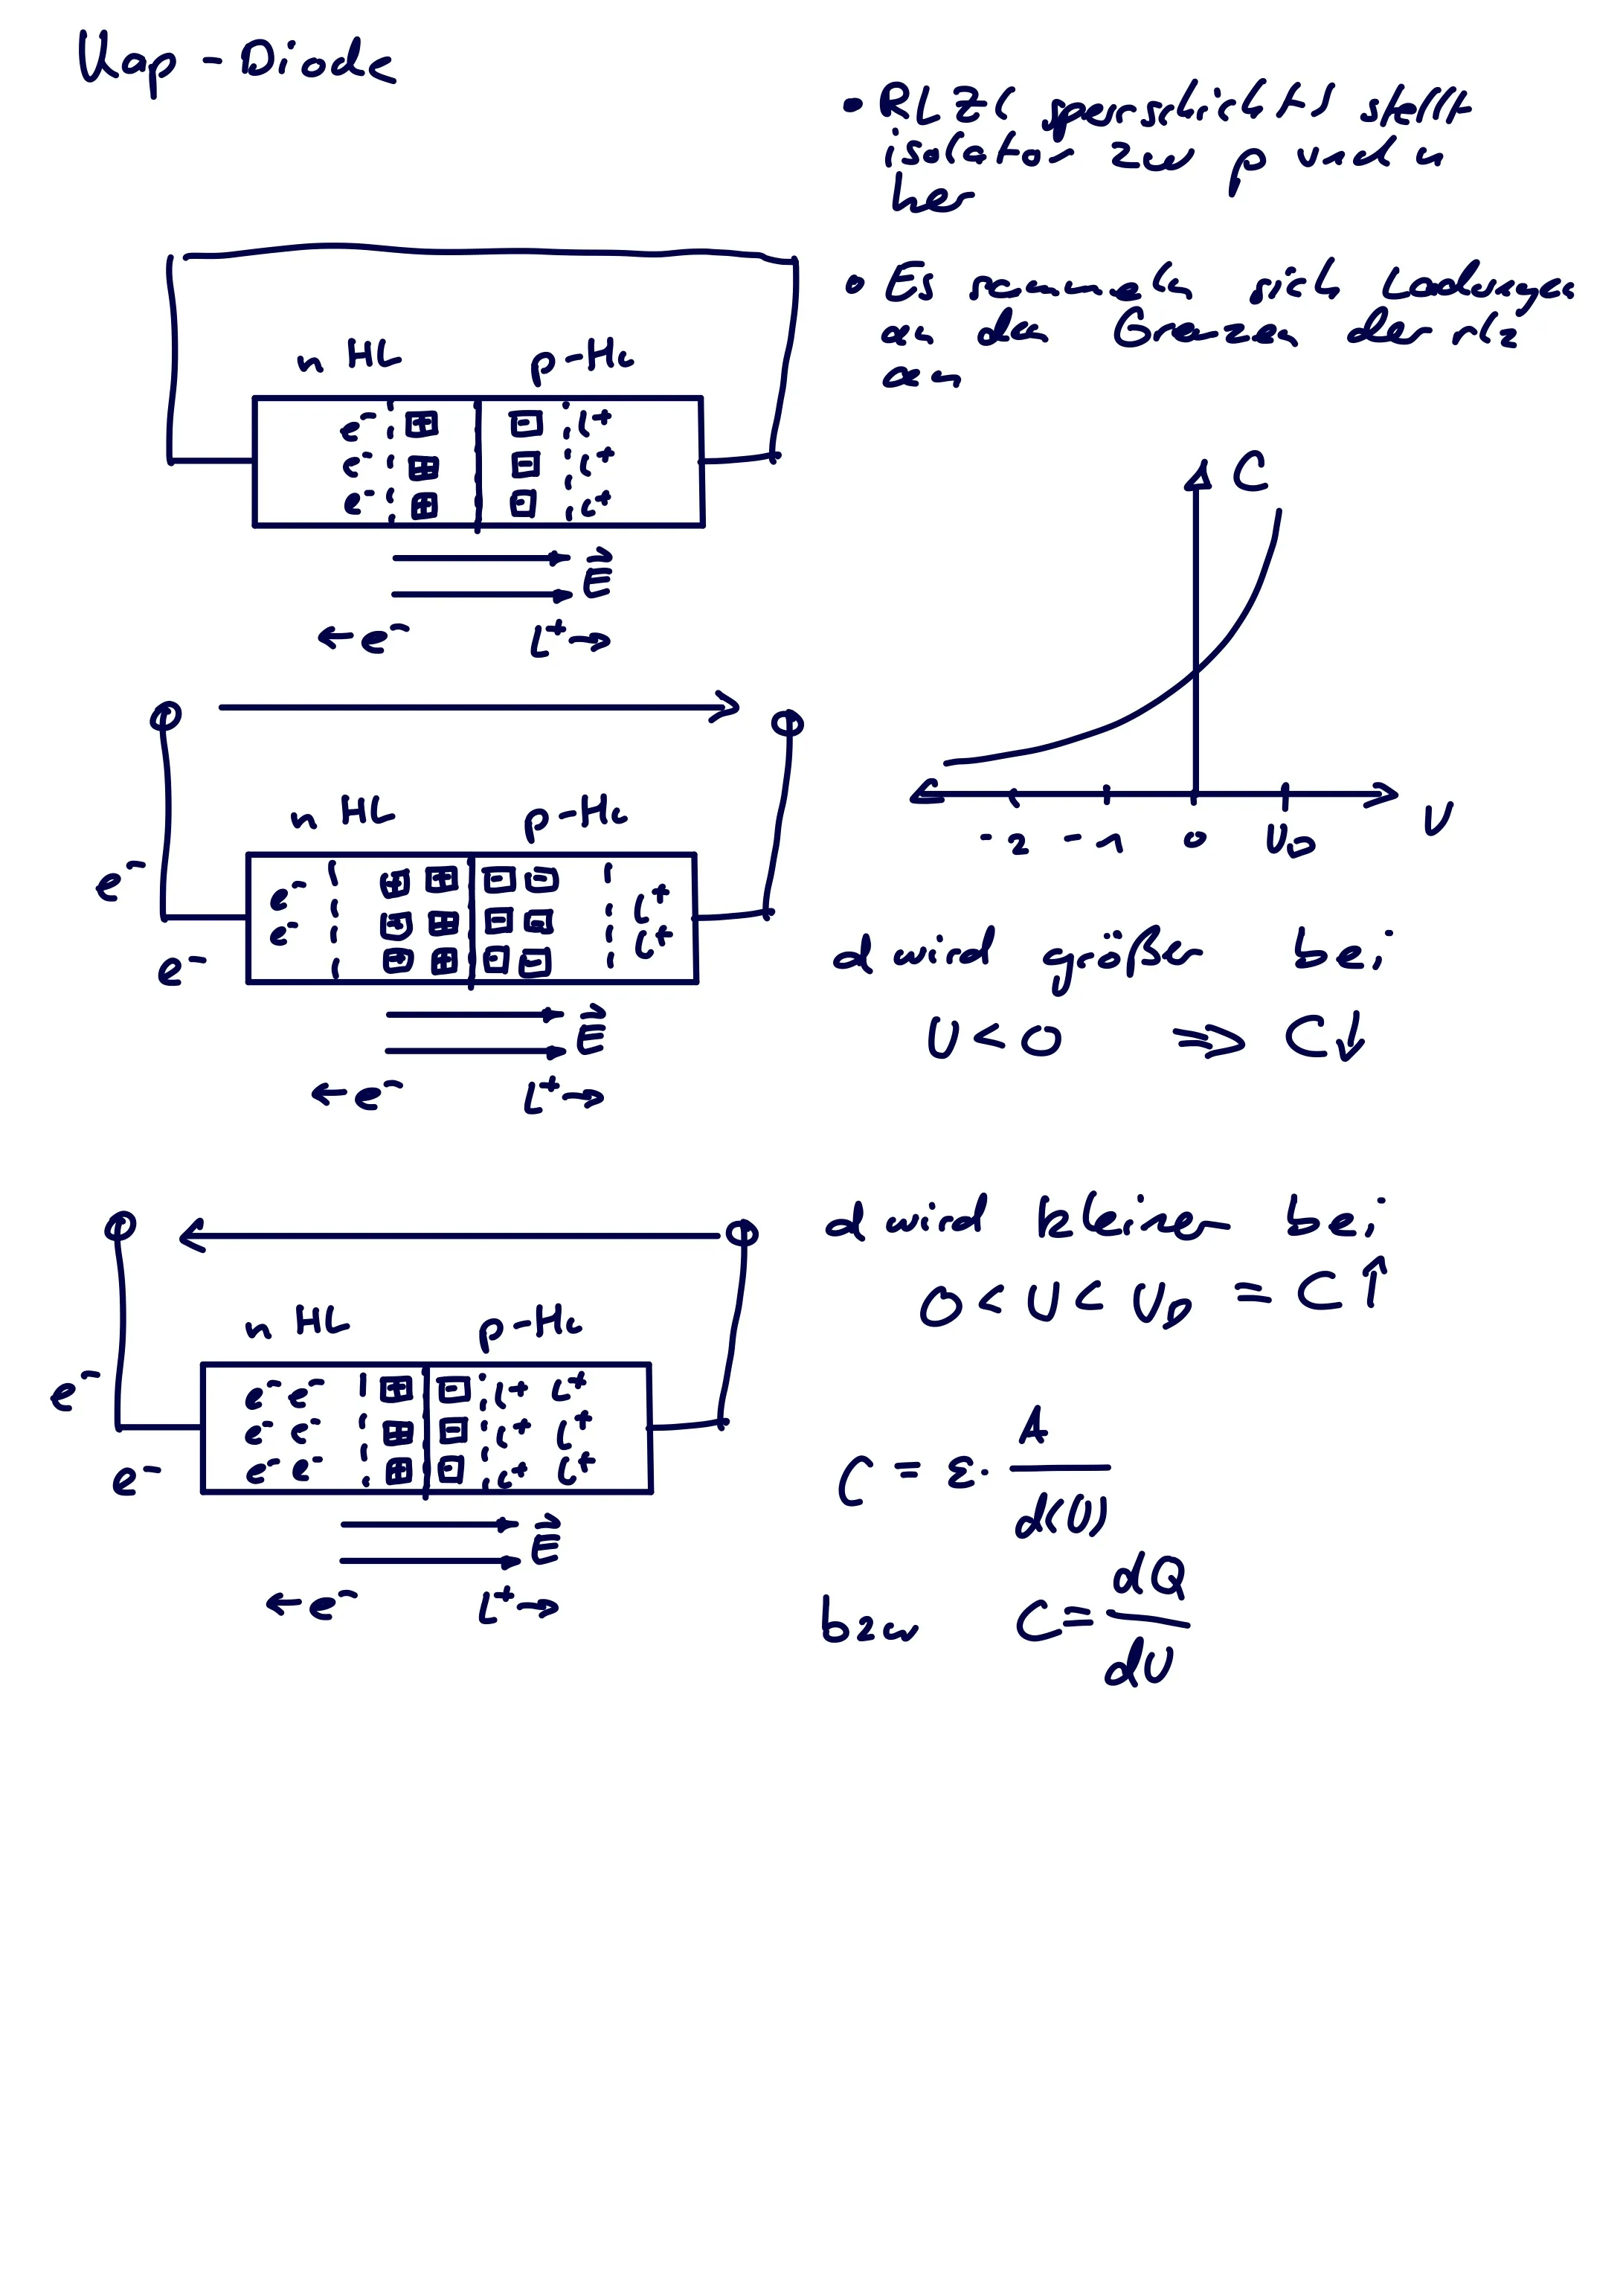 Kap - Diode
• RLZ ( sperrschicht) stellt
isolator zw p und n
her
• Es sammeln sich Ladungen
an den Grenzen der rlz
an
n HL p-HL
e⁻ + - L⁺
e⁻ + - L⁺
e⁻ + - L⁺
E⃗
← e⁻ L⁺ →
C
-2 -1 0 U_D U
n HL p-HL
e⁻
e⁻ + + - - L⁺
e⁻ + + - - L⁺
+ + - -
e⁻
E⃗
← e⁻ L⁺ →
d wird größer bei
U < 0 ⇒ C↓
d wird kleiner bei
0 < U < U_D = C↑
n HL p-HL
e⁻
e⁻ e⁻ + - L⁺ L⁺
e⁻ e⁻ + - L⁺ L⁺
e⁻ e⁻ + - L⁺ L⁺
e⁻
E⃗
← e⁻ L⁺ →
C = ε · A / d(U)
bzw C = dQ / dU